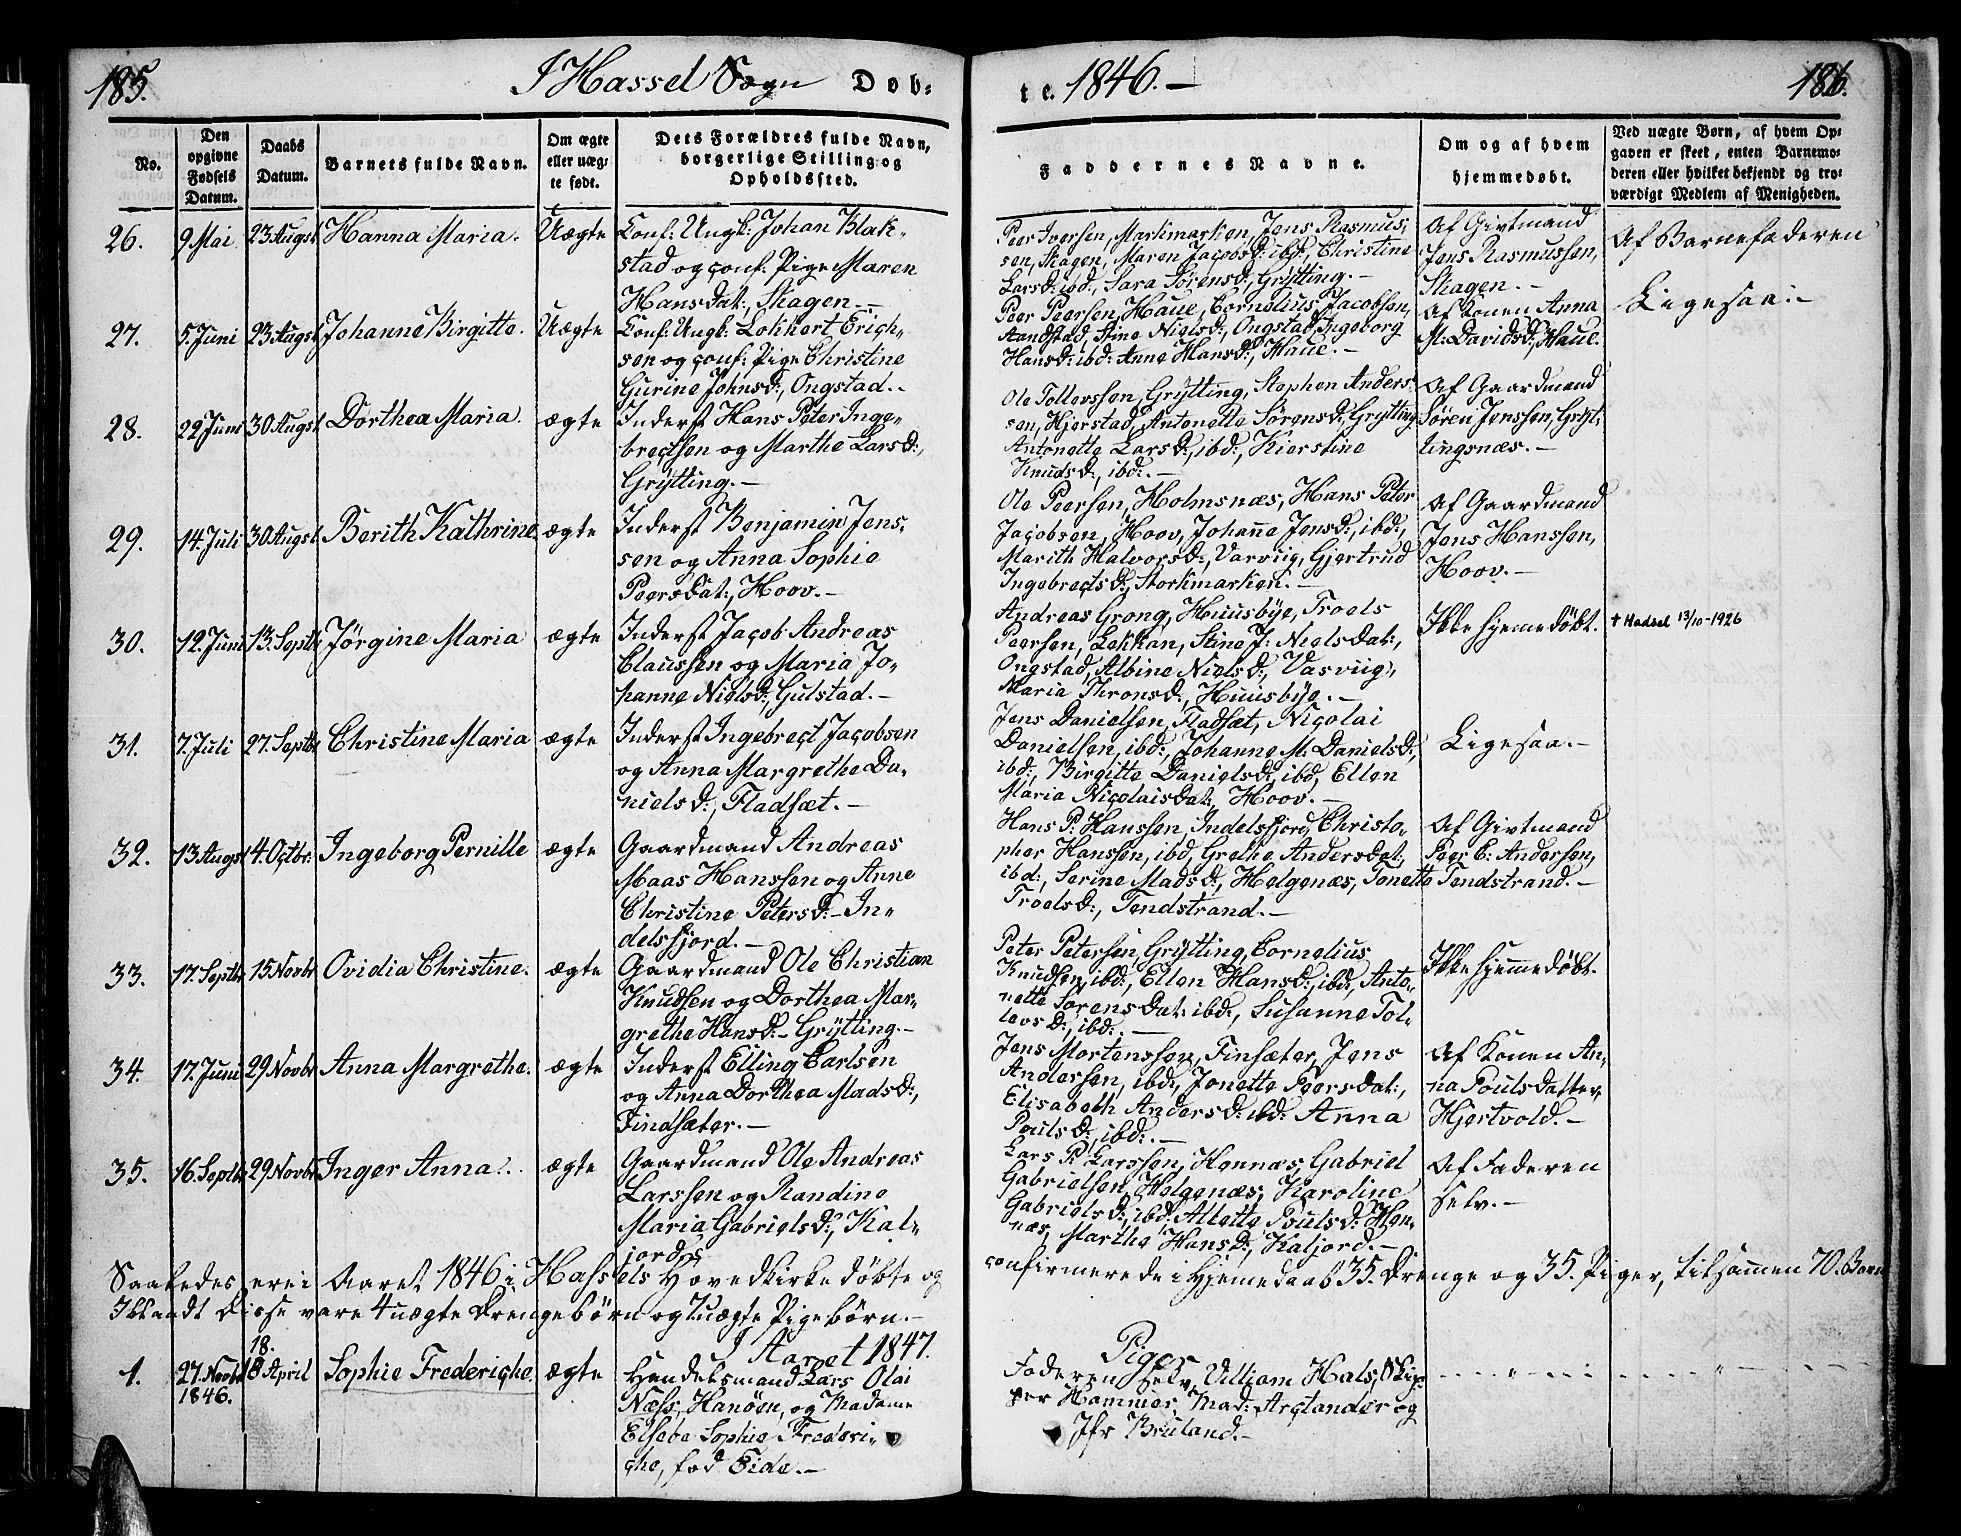 185.
I Hassel Sogn Døb-
te. 1846.-
186.
No.
Den opgivne Fødsels Datum.
Daabs Datum.
Barnets fulde Navn.
Om ægte eller uæg-
te født.
Dets Forældres fulde Navn,
borgerlige Stilling og
Opholdssted.
Faddernes Navne.
Om og af hvem
hjemmedøbt.
Ved uægte Børn, af hvem Op-
gaven er skeet, enten Barnemo-
deren eller hvilket bekjendt og tro-
værdigt Medlem af Menigheden.
26.
9 Mai
23 Augst
Hanna Maria.
Uægte
Conf: Ungk: Johan Blak-
stad og conf: Pige Maren
Hansdat:, Skagen.-
Peer Iversen, Markmarken, Jens Rasmus-
sen, Skagen, Maren Jacobsd: ibd:, Christine
Larsd: ibd:, Sara Sørensd:, Grÿtting.-
Af Givtmand
Jens Rasmussen,
Skagen.-
Af Barnefaderen
27.
5. Juni
23 Augst
Johanne Birgitte.
Uægte
Conf: Ungk: Lokkert Erich-
sen og conf: Pige Christine
Gurine Johnsd:, Ongstad.-
Peer Peersen, Haue, Cornelius Jacobsen,
Aandstad, Stine Nielsd:, Ongstad, Ingeborg
Hansd: ibd: Anne Hansd:, Haue.-
Af Konen Anna
M: Davidsd:, Haue.
Ligesaa.-
28.
22 Juni
30 Augst
Dorthea Maria.
ægte
Inderst Hans Peter Inge-
brectsen og Marthe Larsd:,
Grÿtting.-
Ole Tollevssen, Grÿtting, Stephen Anders-
sen, Hjerstad, Antonette Sørensd:, Grÿtting
Antonette Larsd:, ibd:, Kierstine
Knudsd:, ibd:.-
Af Gaardmand
Søren Jenssen, Grÿt-
tingsnæs.-
29.
14. Juli
30 Augst
Berith Kathrine
ægte
Inderst Benjamin Jens-
sen og Anna Sophie
Peersdat:, Hoov.-
Ole Peersen, Holmsnæs, Hans Peter
Jacobsen, Hoov, Johanne Jensd:, ibd:,
Marith Halvorsd:, Varviig, Gjertrud
Ingebrectsd:, Storkmarken.-
Af Gaardmand
Jens Hanssen,
Hoov.-
30.
12. Juni
13. Septbr
Jørgine Maria
ægte
Inderst Jacob Andreas
Claussen og Maria Jo-
hanne Nielsd:, Gulstad.-
Andreas Grong, Huusbÿe, Troels
Peersen, Lekkan, Stine J: Nielsdat:,
Ongstad, Albine Nielsd:, Vasviig,
Maria Thronsd:, Huusbÿe.-
Ikke hjemedøbt.
+ Hadsel 13/10-1926
31.
7. Juli
27. Septbr
Christine Maria
ægte
Inderst Ingebrect Jacobsen
og Anna Margrethe Da-
nielsd:, Fladsæt.-
Jens Danielsen, Fladsæt, Nicolai
Danielsen, ibd:, Johanne M: Danielsd:,
ibd:, Birgitte Danielsd:, ibd, Ellen
Maria Nicolaisdat:, Hoov.-
Ligesaa.-
32.
13 Augst
4. Octbr.
Ingeborg Pernille
ægte
Gaardmand Andreas
Maas Hanssen og Anne
Christine Petersd:- In-
delsfjord.-
Hans P: Hanssen, Indelsfjord, Christo-
pher Hanssen, ibd, Grethe Andersdat:,
ibd:, Serine Madsd:, Helgenæs, Tonette
Troelsd:, Tendstrand.-
Af Givtmand
Peer C: Andersen,
Tendstrand.-
33.
17. Septbr
15 Novbr
Ovidia Christine.
ægte
Gaardmand Ole Christian
Knudsen og Dorthea Mar-
grethe Hansd:- Grÿtting.-
Peter Petersen, Grÿtting, Cornelius
Knudsen, ibd:, Ellen Hansd:, ibd:, Anto-
nette Sørensdat: ibd:, Susanne Tol-
levsd:, ibd:.-
Ikke hjemmedøbt.
34.
17. Juni
29 Novbr
Anna Margrethe.
ægte
Inderst Elling Carlsen
og Anna Dorthea Madsd:,
Findsæter.-
Jens Mortenssen, Finsæter, Jens
Andersen, ibd:, Jonette Peersdat:,
Elisabeth Andersd: ibd: Anna
Poulsd:, ibd:.-
Af Konen An-
na Poulsdatter,
Hjertvold.-
35.
16 Septbr
29 Novbr
Inger Anna.
ægte
Gaardmand Ole Andreas
Larssen og Randine
Maria Gabrielsd:, Kal-
jord.
Lars P: Larssen, Hennæs, Gabriel
Gabrielsen, Helgenæs, Karoline
Gabrielsd:, ibd:, Albette Poulsd: Hen-
næs, Marthe Hansd:, Kaljord.-
Af Faderen
selv.-
Saaledes, ere i Aaret 1846 i Hassels Hovedkirke døbte og
confirmerede i Hjemedaab 35. Drenge og 35. Piger, tilsamen 70. Børn
Iblandt disse vare 4 uægte Drengebørn og 7 uægte Pigebørn.-
I Aaret 1847.
Piger
1.
27. Novbr
1846.
18.
April
Sophie Frederiche.
ægte
Handelsmand Lars Olai
Næss, Hanøen, og Madame
Elsebe Sophie Frederi-
che, fød Eide.-
Faderen selv, Villiam Hals, Skip-
per Hammer, Mad: Arctander og
Jfr Bruland.-